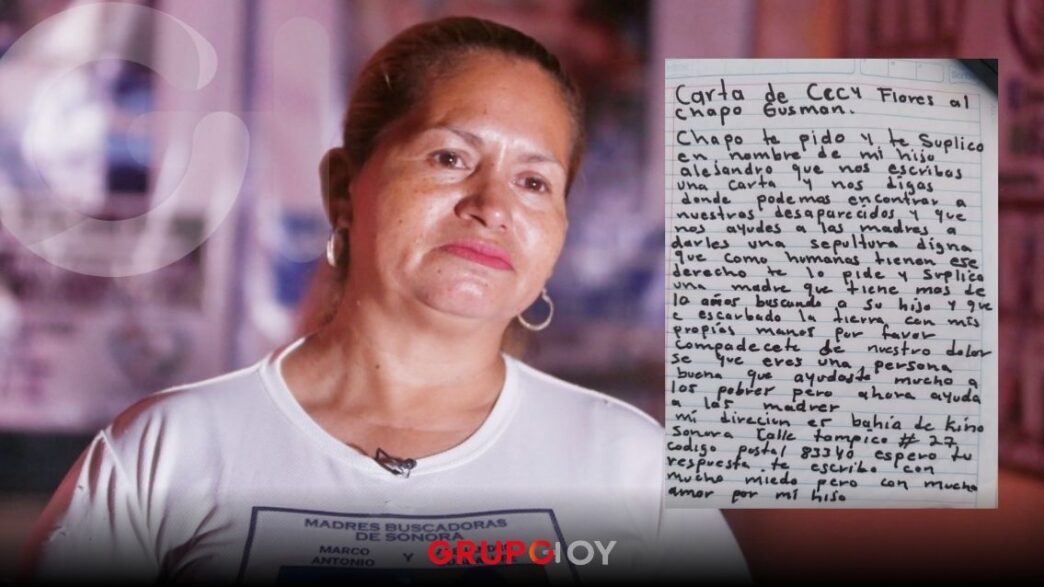 Carta de Cecy Flores al
Chapo Gusman.
Chapo te pido y te Suplico
en nombre de mi hiso
alesandro que nos escribas
una carta y nos digas
donde podemos encontrar a
nuestros desaparecidos y que
nos ayudes a las madres a
darles una sepultura digna
que como humanos tienen ese
derecho te lo pide y Suplico
una madre que tiene mas de
10 años buscando a su hiso y que
e escarbado la tierra con mis
propias manos por favor
Compadecete de nuestro dolor
se que eres una persona
buena que ayudaste mucho a
los pobrer pero ahora ayuda
a las madrer
mi direcion er bahia de Kino
Sonora Calle tampico # 27
codigo postal 83340 espero tu
respuesta te escribo con
mucho miedo pero con mucho
amor por mi hiso
MADRES BUSCADORAS
DE SONORA
MARCO
ANTONIO Y
GRUPO HOY